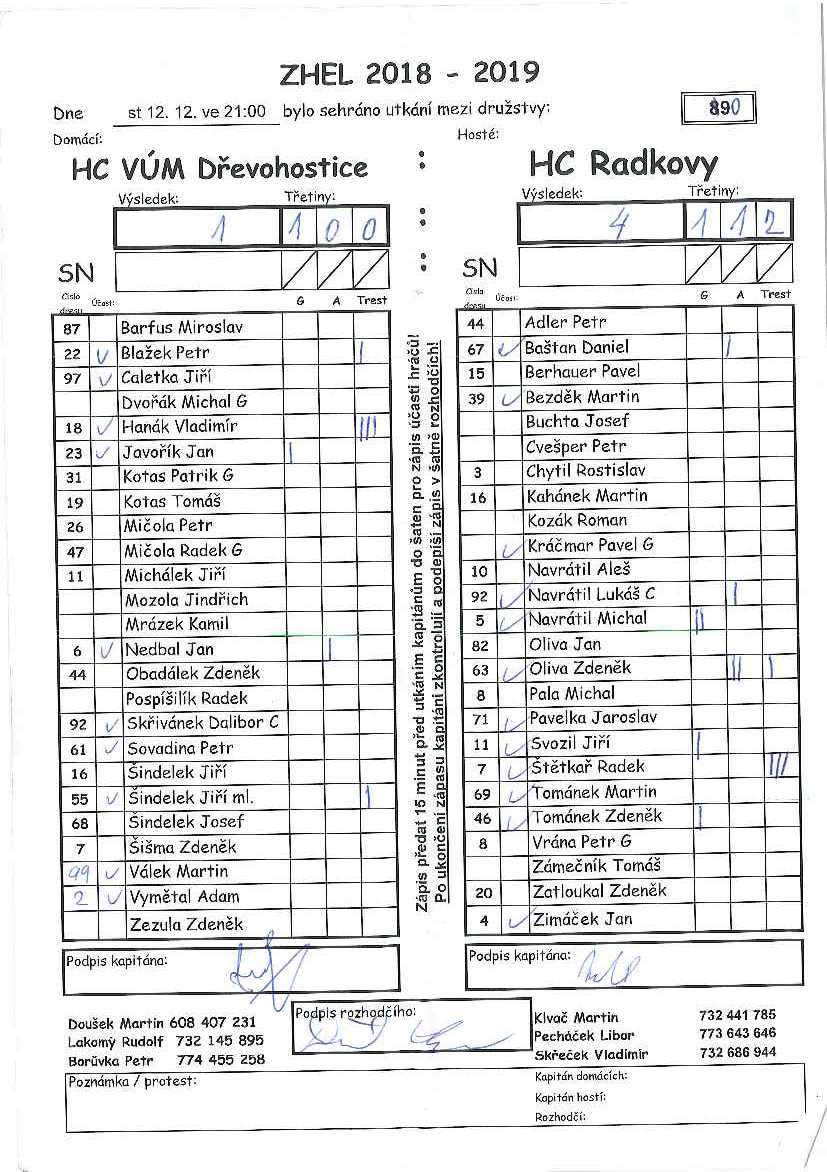 ZHEL 2018 - 2019
Dne st 12. 12. ve 21:00 bylo sehráno utkání mezi družstvy: 890
Domácí: Hosté:
HC VÚM Dřevohostice : HC Radkovy
Výsledek: Třetiny: : Výsledek: Třetiny:
1 1 0 0 4 1 1 2
SN : SN
Číslo dresu Účast: G A Trest
87 Barfus Miroslav
22 V Blažek Petr |
97 V Caletka Jiří
Dvořák Michal G
18 V Hanák Vladimír |||
23 V Javořík Jan |
31 Kotas Patrik G
19 Kotas Tomáš
26 Mičola Petr
47 Mičola Radek G
11 Michálek Jiří
Mozola Jindřich
Mrázek Kamil
6 V Nedbal Jan |
44 Obadálek Zdeněk
Pospíšilík Radek
92 V Skřivánek Dalibor C
61 V Sovadina Petr
16 Šindelek Jiří
55 V Šindelek Jiří ml. |
68 Šindelek Josef
7 Šišma Zdeněk
99 V Válek Martin
2 V Vymětal Adam
Zezula Zdeněk
Podpis kapitána:
Zápis předat 15 minut před utkáním kapitánům do šaten pro zápis účasti hráčů!
Po ukončení zápasu kapitáni zkontrolují a podepíší zápis v šatně rozhodčích!
Číslo dresu Účast: G A Trest
44 Adler Petr
67 V Baštan Daniel |
15 Berhauer Pavel
39 V Bezděk Martin
Buchta Josef
Cvešper Petr
3 Chytil Rostislav
16 Kahánek Martin
Kozák Roman
V Kráčmar Pavel G
10 Navrátil Aleš
92 V Navrátil Lukáš C |
5 V Navrátil Michal ||
82 Oliva Jan
63 V Oliva Zdeněk || |
8 Pala Michal
71 V Pavelka Jaroslav
11 V Svozil Jiří |
7 V Štětkař Radek |||
69 V Tománek Martin
46 V Tománek Zdeněk |
8 Vrána Petr G
Zámečník Tomáš
20 Zatloukal Zdeněk
4 V Zimáček Jan
Podpis kapitána:
Doušek Martin 608 407 231
Lakomý Rudolf 732 145 895
Borůvka Petr 774 455 258
Podpis rozhodčího:
Klvač Martin 732 441 785
Pecháček Libor 773 643 646
Skřeček Vladimír 732 686 944
Poznámka / protest:
Kapitán domácích:
Kapitán hostí:
Rozhodčí: